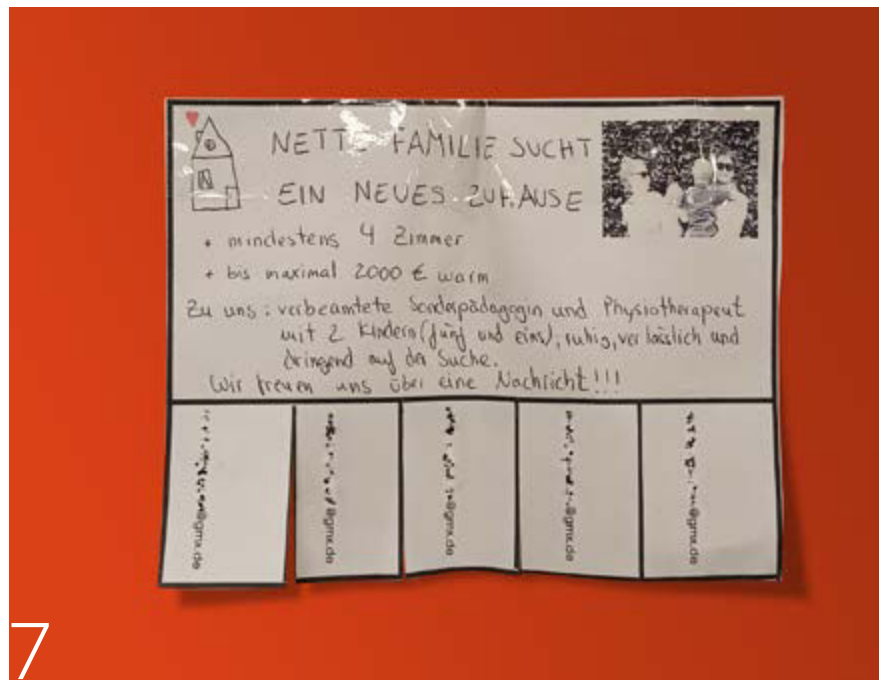 NETTE FAMILIE SUCHT
EIN NEUES ZUHAUSE
+ mindestens 4 Zimmer
+ bis maximal 2000 € warm
Zu uns: verbeamtete Sonderpädagogin und Physiotherapeut
mit 2 Kindern (fünf und eins), ruhig, verlässlich und
dringend auf der Suche.
Wir freuen uns über eine Nachricht!!!
@gmx.de
@gmx.de
@gmx.de
@gmx.de
@gmx.de
7